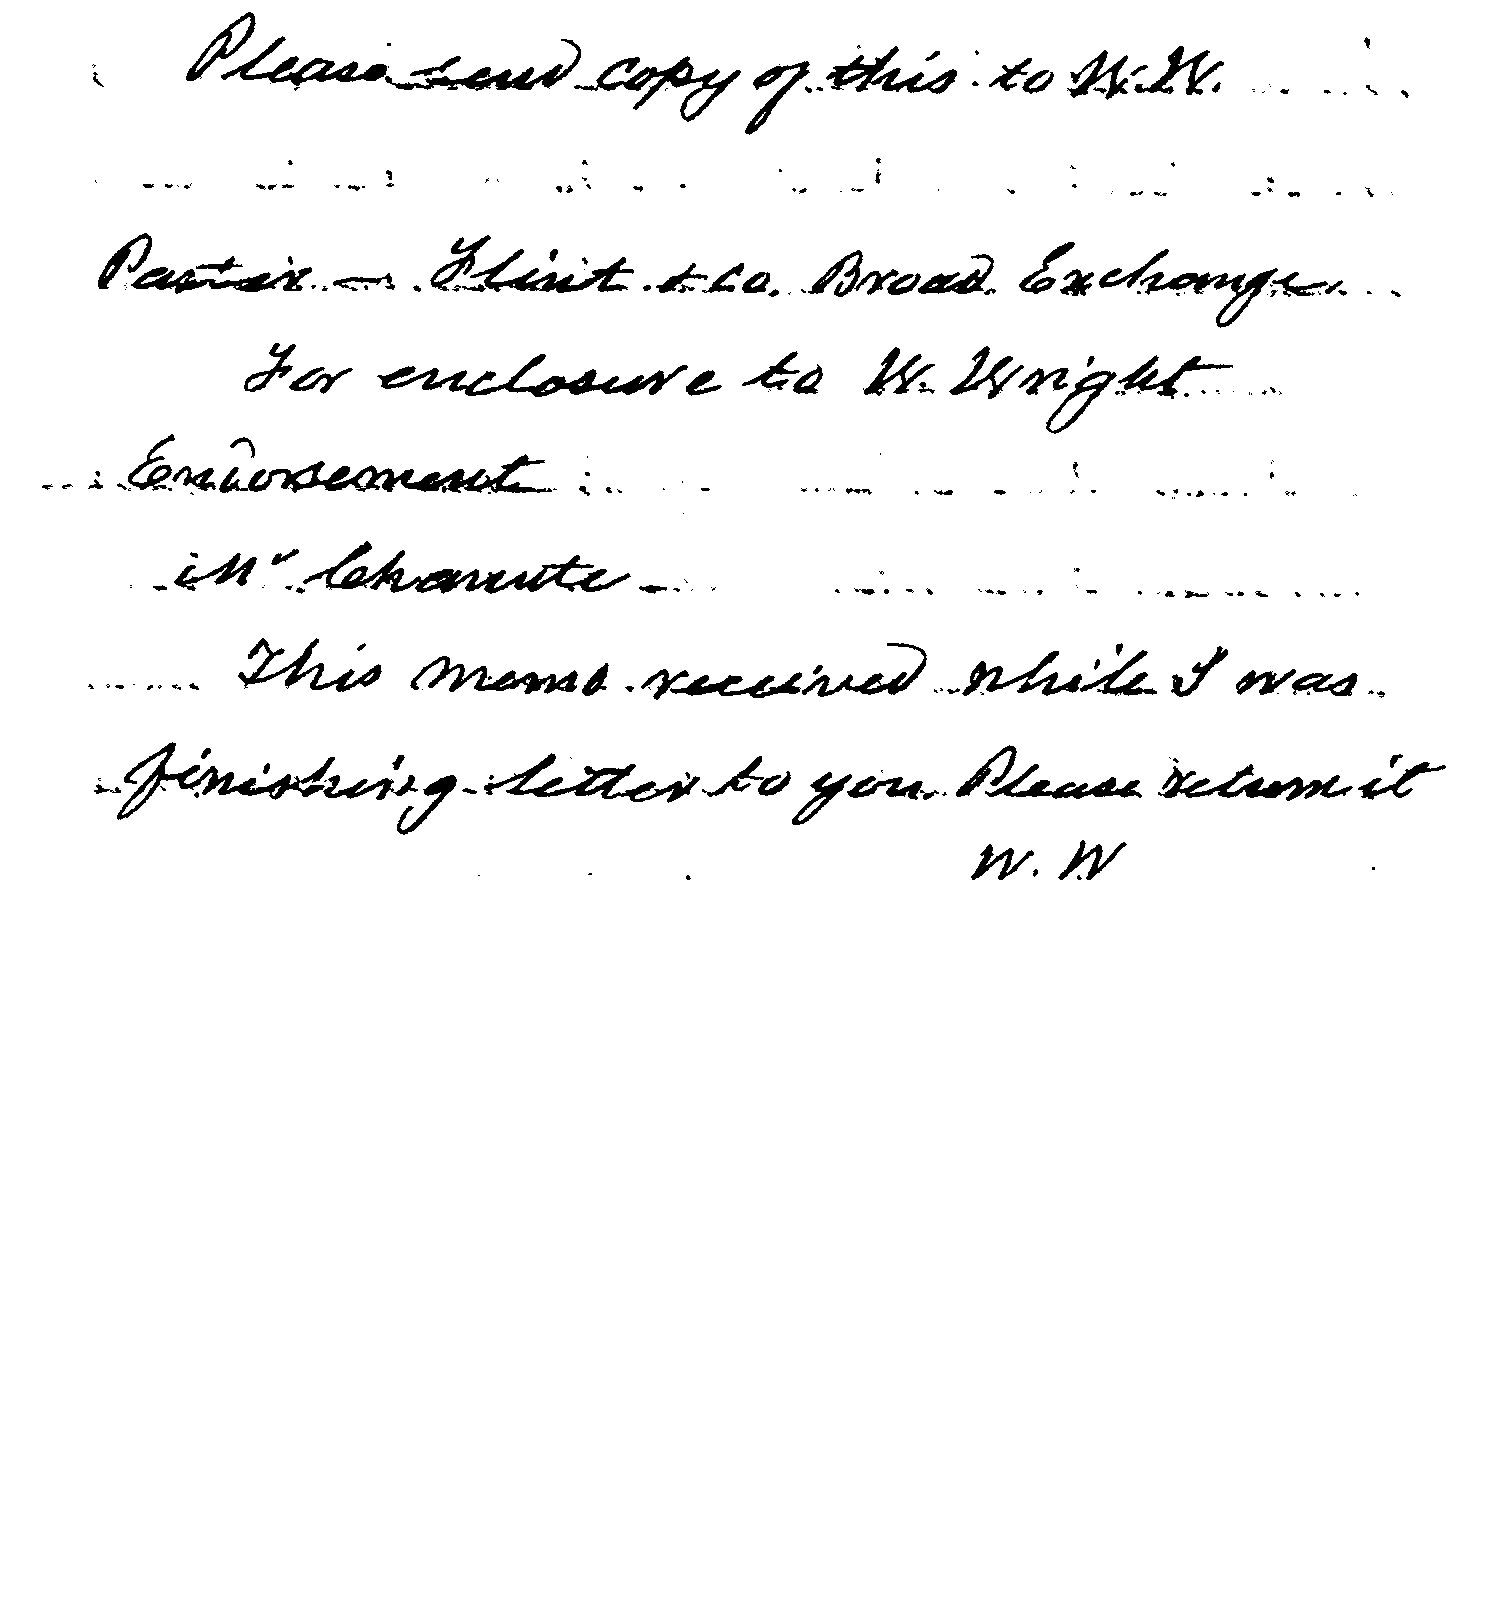 Please send copy of this to W.W.
Paster — Flint & Co. Broad Exchange.
For enclosure to W. Wright
Endorsement
Mr Chanute —
This memo received while I was
finishing letter to you. Please return it
W. W